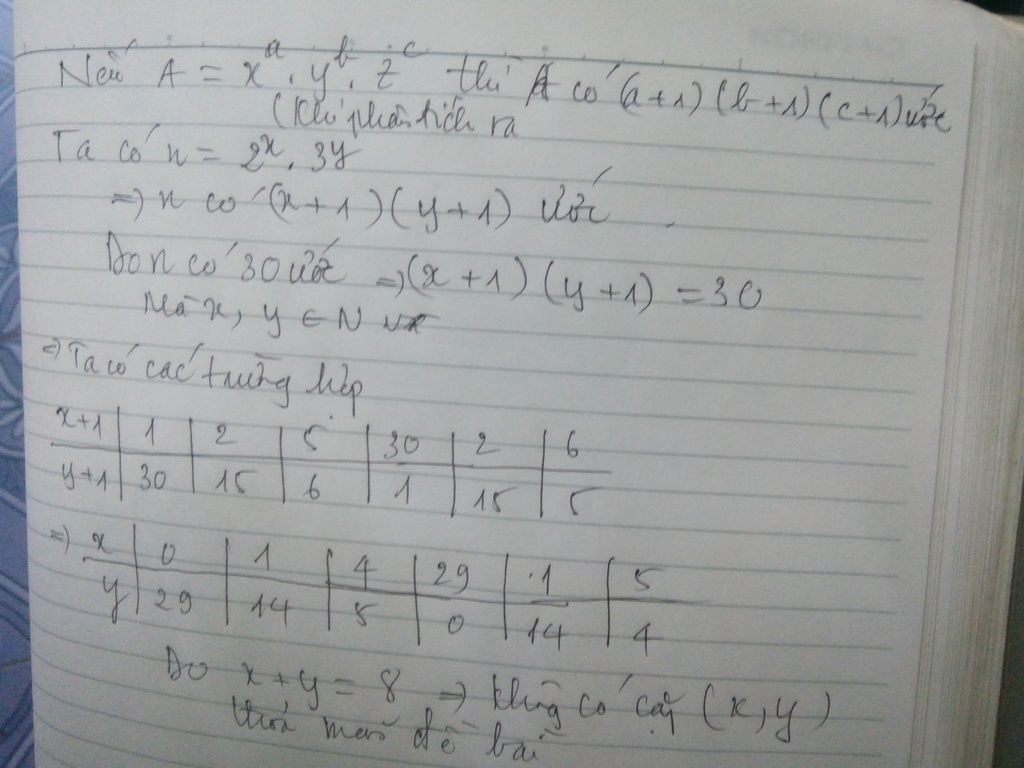 Nếu A = x^a . y^b . z^c thì A có (a+1)(b+1)(c+1) ước
(Khi phân tích ra
Ta có n = 2^x . 3^y
=> n có (x+1)(y+1) ước
Do n có 30 ước => (x+1)(y+1) = 30
Mà x, y ∈ N
=> Ta có các trường hợp
x+1 | 1 | 2 | 5 | 30 | 2 | 6
y+1 | 30 | 15 | 6 | 1 | 15 | 5
=> x | 0 | 1 | 4 | 29 | 1 | 5
y | 29 | 14 | 5 | 0 | 14 | 4
Do x+y = 8 => không có cặp (x,y)
thoả mãn đề bài